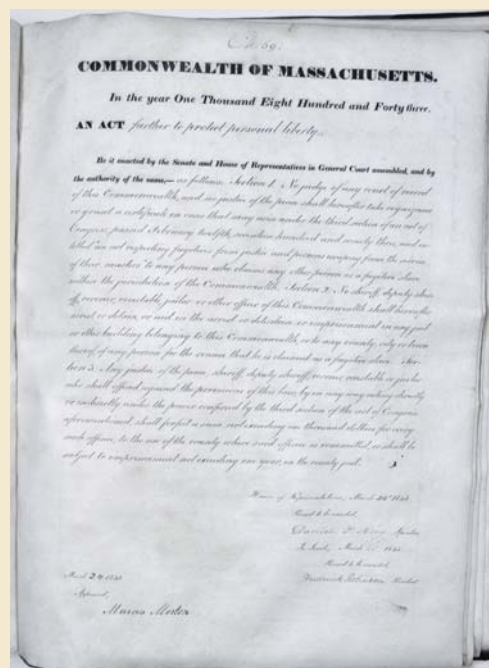 Ch. 69.
COMMONWEALTH OF MASSACHUSETTS.
In the year One Thousand Eight Hundred and Forty three.
AN ACT further to protect personal liberty.
Be it enacted by the Senate and House of Representatives in General Court assembled, and by
the authority of the same,— as follows. Section 1. No judge of any court of record
of this Commonwealth, and no justice of the peace shall hereafter take cognizance
or grant a certificate in cases that may arise under the third section of an act of
Congress, passed February twelfth, seventeen hundred and ninety three, and en-
titled "an act respecting fugitives from justice and persons escaping from the service
of their masters" to any person who claims any other person as a fugitive slave
within the jurisdiction of the Commonwealth. Section 2. No sheriff, deputy sher-
iff, coroner, constable, jailer or other officer of this Commonwealth shall hereafter
arrest or detain, or aid in the arrest or detention or imprisonment in any jail
or other building belonging to this Commonwealth, or to any county, city or town
thereof, of any person for the reason that he is claimed as a fugitive slave. Sec-
tion 3. Any justice of the peace, sheriff, deputy sheriff, coroner, constable or jailer
who shall offend against the provisions of this law, by in any way acting directly
or indirectly under the power conferred by the third section of the act of Congress
aforementioned, shall forfeit a sum not exceeding one thousand dollars for every
such offence, to the use of the county where said offence is committed, or shall be
subject to imprisonment not exceeding one year, in the county jail.
House of Representatives, March 24 1843
Passed to be enacted,
Daniel P. King Speaker
In Senate, March 1843
Passed to be enacted,
Frederick Robinson President
March 24 1843
Approved,
Marcus Morton